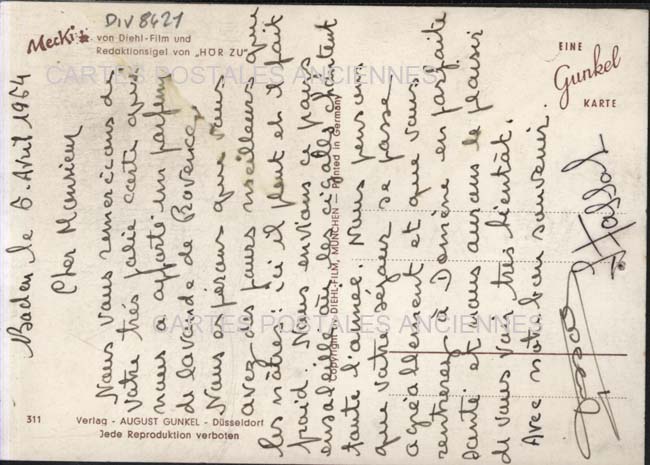 DIV8421
Mecki
von Diehl-Film und
Redaktionsigel von „HÖR ZU"
EINE
Gunkel
KARTE
CARTES POSTALES ANCIENNES
Baden le 6 Avril 1964
Cher Monsieur
Nous vous remercions de
votre très jolie carte qui
nous a apporté un parfum
de lavande de Provence.
Nous espérons que vous
avez des jours meilleurs que
les nôtres: ici il pleut et il fait
froid. Nous envions ce pays
ensoleillé où les cigales chantent
toute l'année. Nous pensons
que votre séjour se passe
agréablement et que vous
rentrerez à Domène en parfaite
santé et nous aurons le plaisir
de vous voir très bientôt.
Avec notre bon souvenir.
Copyright by DIEHL-FILM, MÜNCHEN — Printed in Germany
CARTES POSTALES ANCIENNES
311
Verlag - AUGUST GUNKEL - Düsseldorf
Jede Reproduktion verboten